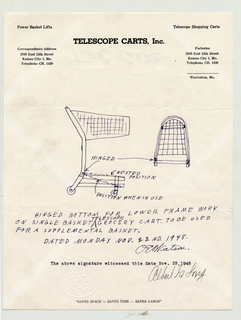 Power Basket Lifts
Telescope Shopping Carts
TELESCOPE CARTS, Inc.
Correspondence Address
1809 East 12th Street
Kansas City 1, Mo.
Telephone CH. 1439
Factories
1809 East 12th Street
Kansas City 1, Mo.
Telephone CH. 1439
Warrenton, Mo.
HINGED
NESTED
POSITION
POSITION WHEN IN USE
HINGED BOTTOM FOR LOWER FRAME WORK
ON SINGLE BASKET TELESCOPE GROCERY CART. TO BE USED
FOR A SUPPLEMENTAL BASKET.
DATED MONDAY NOV. 22ND. 1948.
The above signature witnessed this date Nov. 22, 1948
"SAVES SPACE — SAVES TIME — SAVES LABOR"